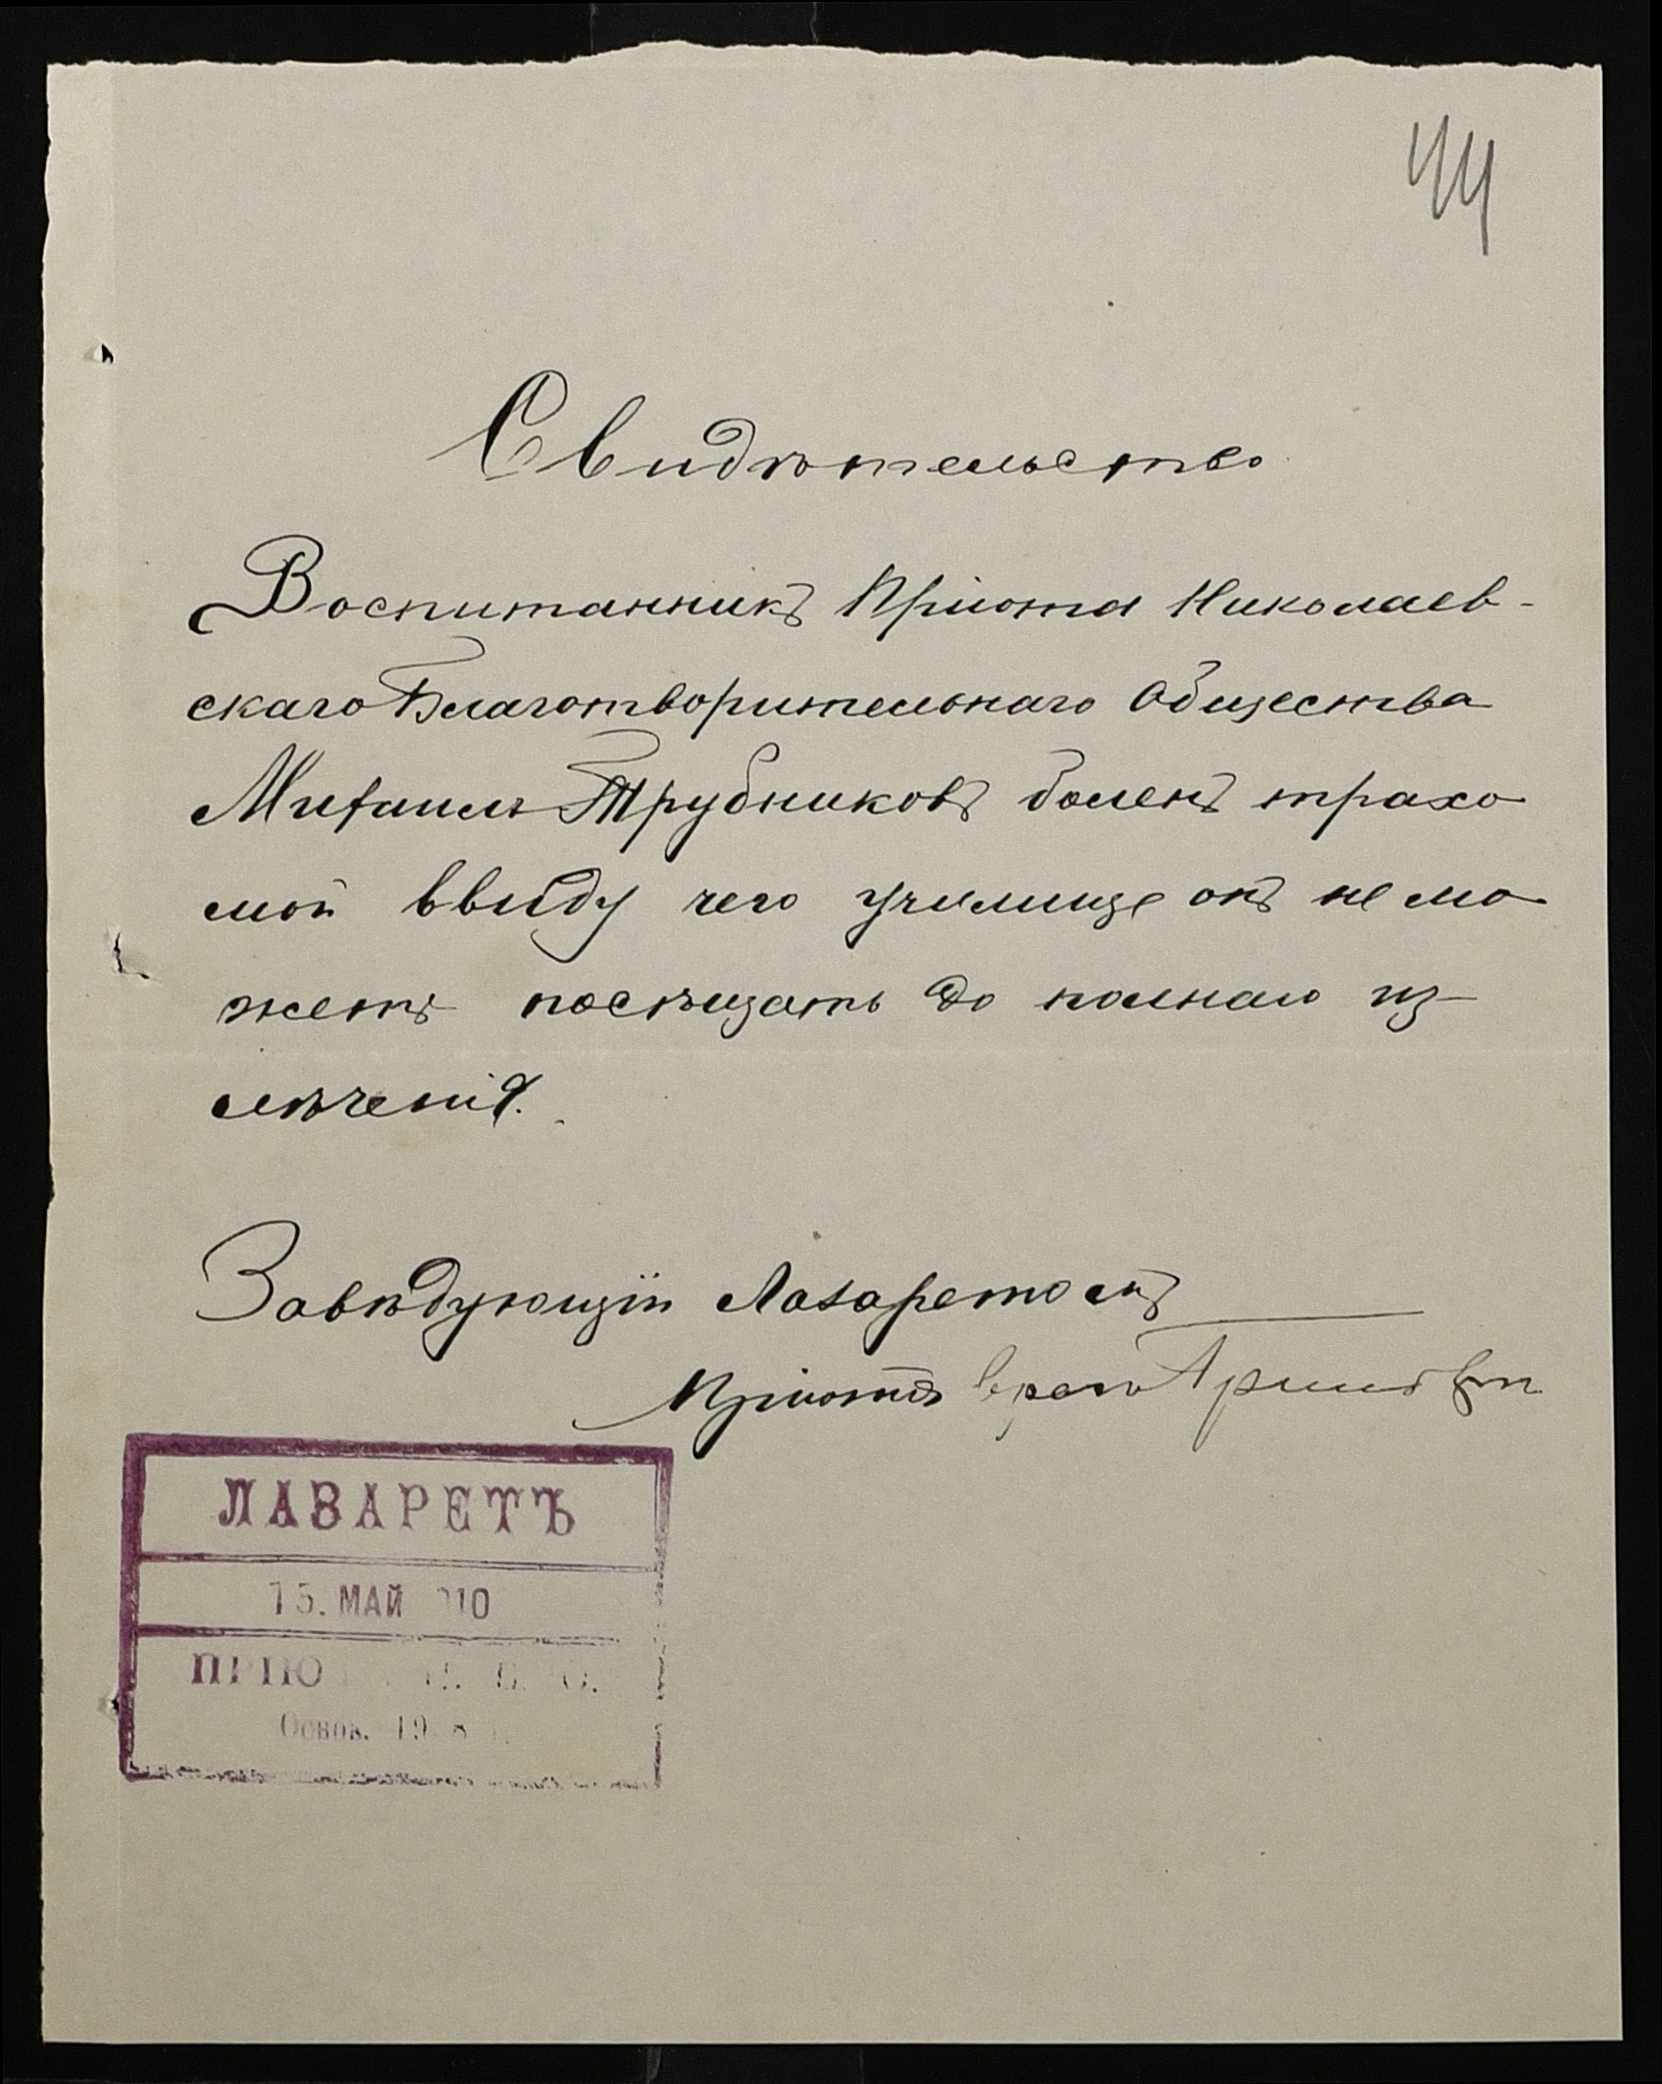 44
Свидѣтельство
Воспитанникъ Пріюта Николаев-
скаго Благотворительнаго Общества
Михаилъ Трубниковъ боленъ трахо
мой ввиду чего училище онъ не мо
жетъ посѣщать до полнаго из-
лѣченія.
Завѣдующій Лазаретомъ
Пріюта врачъ
ЛАЗАРЕТЪ
15. МАЙ 910
Основ.